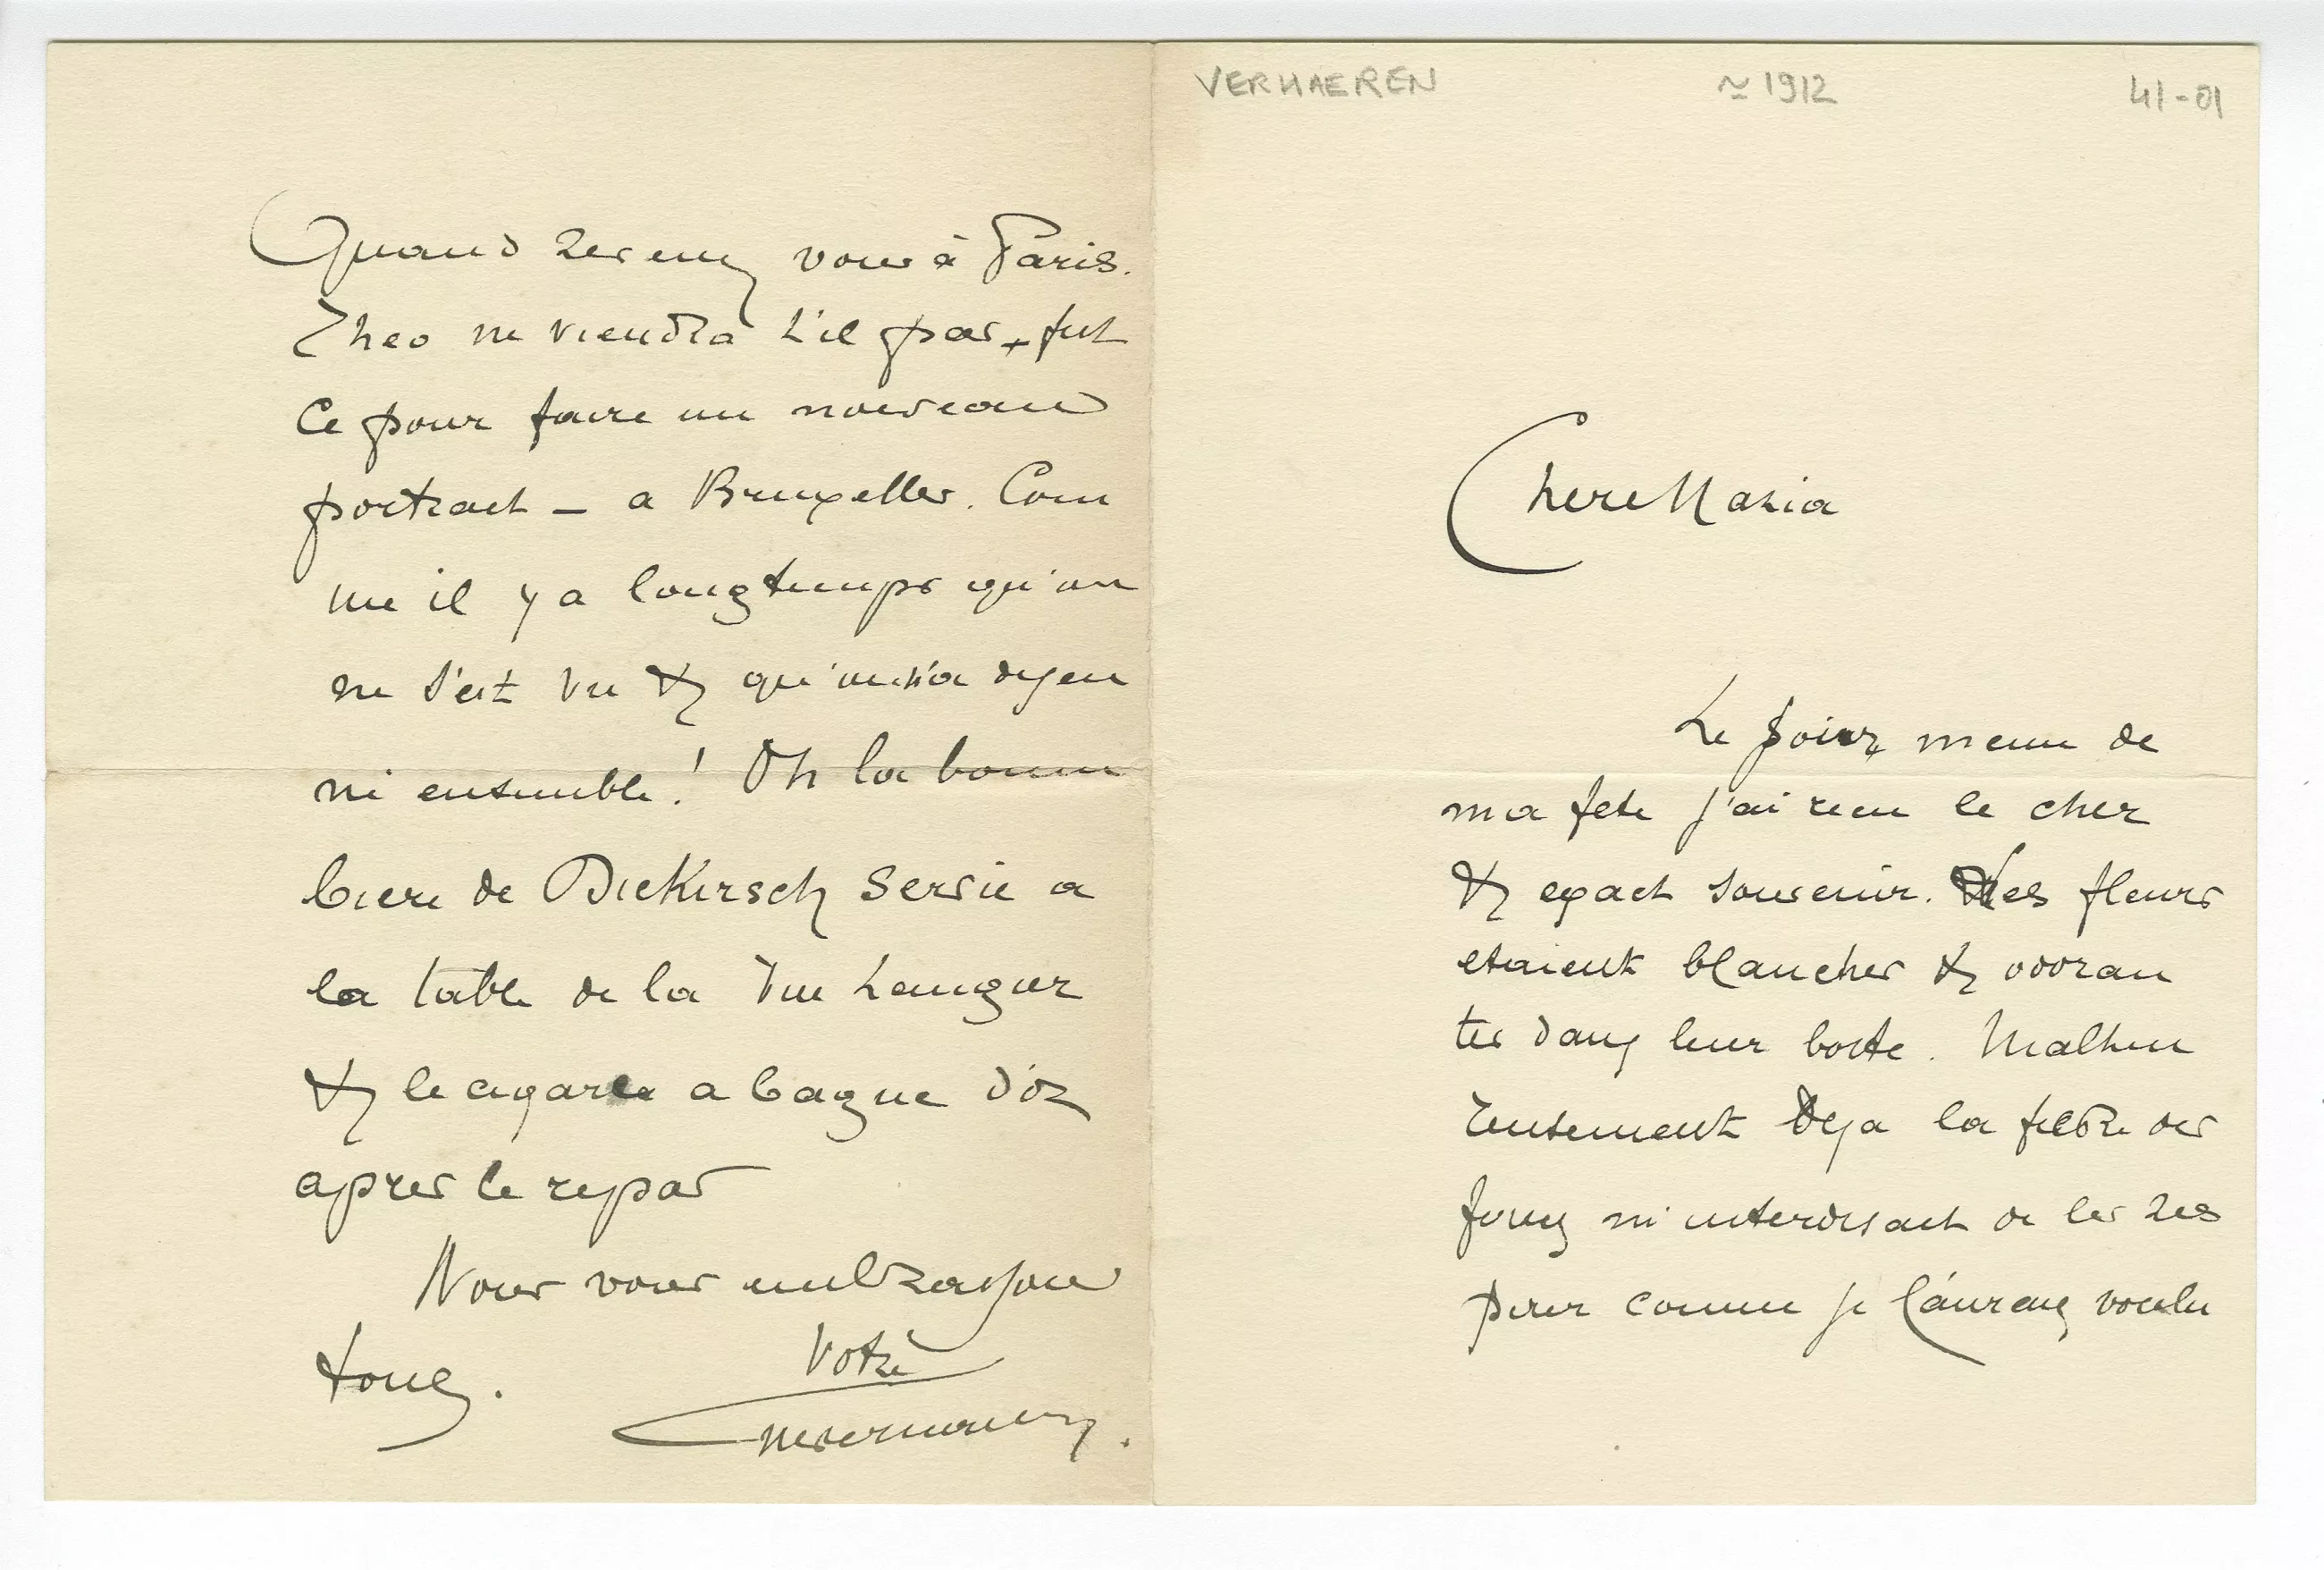 VERHAEREN ≃ 1912 41-01
Chere Maria
Le jour meme de
ma fete j'ai recu le cher
& exact souvenir. Les fleurs
etaient blanches & odoran
tes dans leur boite. Malheu
reusement deja la fievre des
foins m'interdisait de les res
pirer comme je l'aurais voulu
Quand viendrez vous à Paris.
Theo ne viendra t'il pas, fut
ce pour faire un nouveau
portrait — a Bruxelles. Com
me il y a longtemps qu'on
ne s'est vu & qu'on n'a dejeu
né ensemble! Oh la bonne
biere de Diekirsch servie a
la table de la rue Laugier
& le cigare a bague d'or
apres le repas
Nous vous embrassons
tous.
Votre